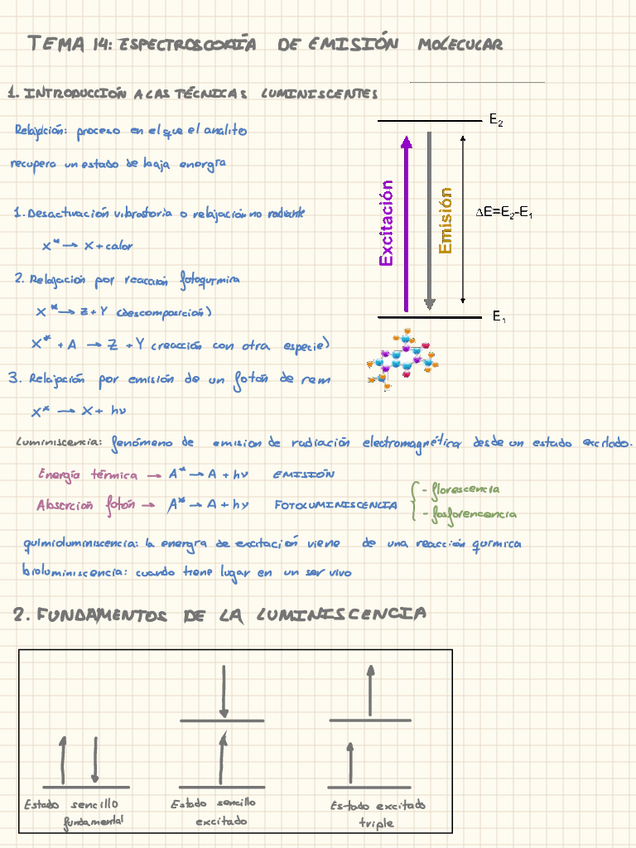 TEMA 14: ESPECTROSCOPÍA DE EMISIÓN MOLECULAR
1. INTRODUCCIÓN A LAS TÉCNICAS LUMINISCENTES
Relajación: proceso en el que el analito
recupera un estado de baja energía
1. Desactivación vibratoria o relajación no radiante
X* → X + calor
2. Relajación por reacción fotoquímica
X* → Z + Y (descomposición)
X* + A → Z + Y (reacción con otra especie)
3. Relajación por emisión de un fotón de rem
X* → X + hν
E₂
Excitación
Emisión
ΔE=E₂-E₁
E₁
Luminiscencia: fenómeno de emisión de radiación electromagnética desde un estado excitado.
Energía térmica → A* → A + hν EMISIÓN
Absorción fotón → A* → A + hν FOTOLUMINISCENCIA { - florescencia
- fosforencencia
quimioluminiscencia: la energía de excitación viene de una reacción química
bioluminiscencia: cuando tiene lugar en un ser vivo
2. FUNDAMENTOS DE LA LUMINISCENCIA
Estado sencillo
fundamental
Estado sencillo
excitado
Estado excitado
triple